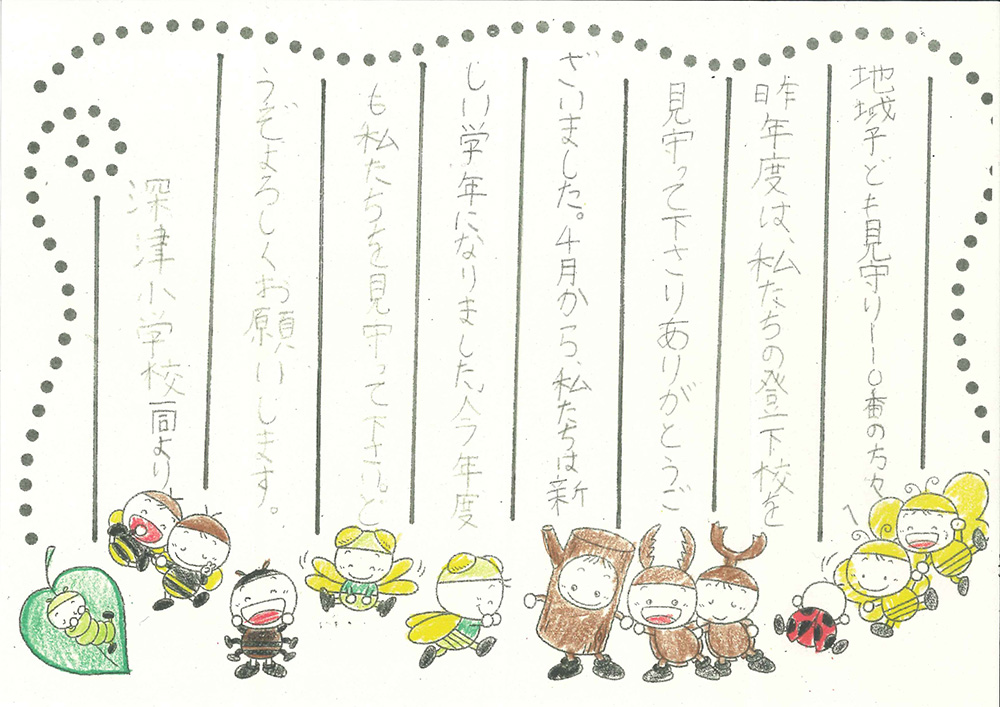 地域子ども見守り一一〇番の方々へ
昨年度は、私たちの登下校を
見守って下さりありがとうご
ざいました。4月から、私たちは新
しい学年になりました。今年度
も私たちを見守って下さい。ど
うぞよろしくお願いします。
深津小学校一同より